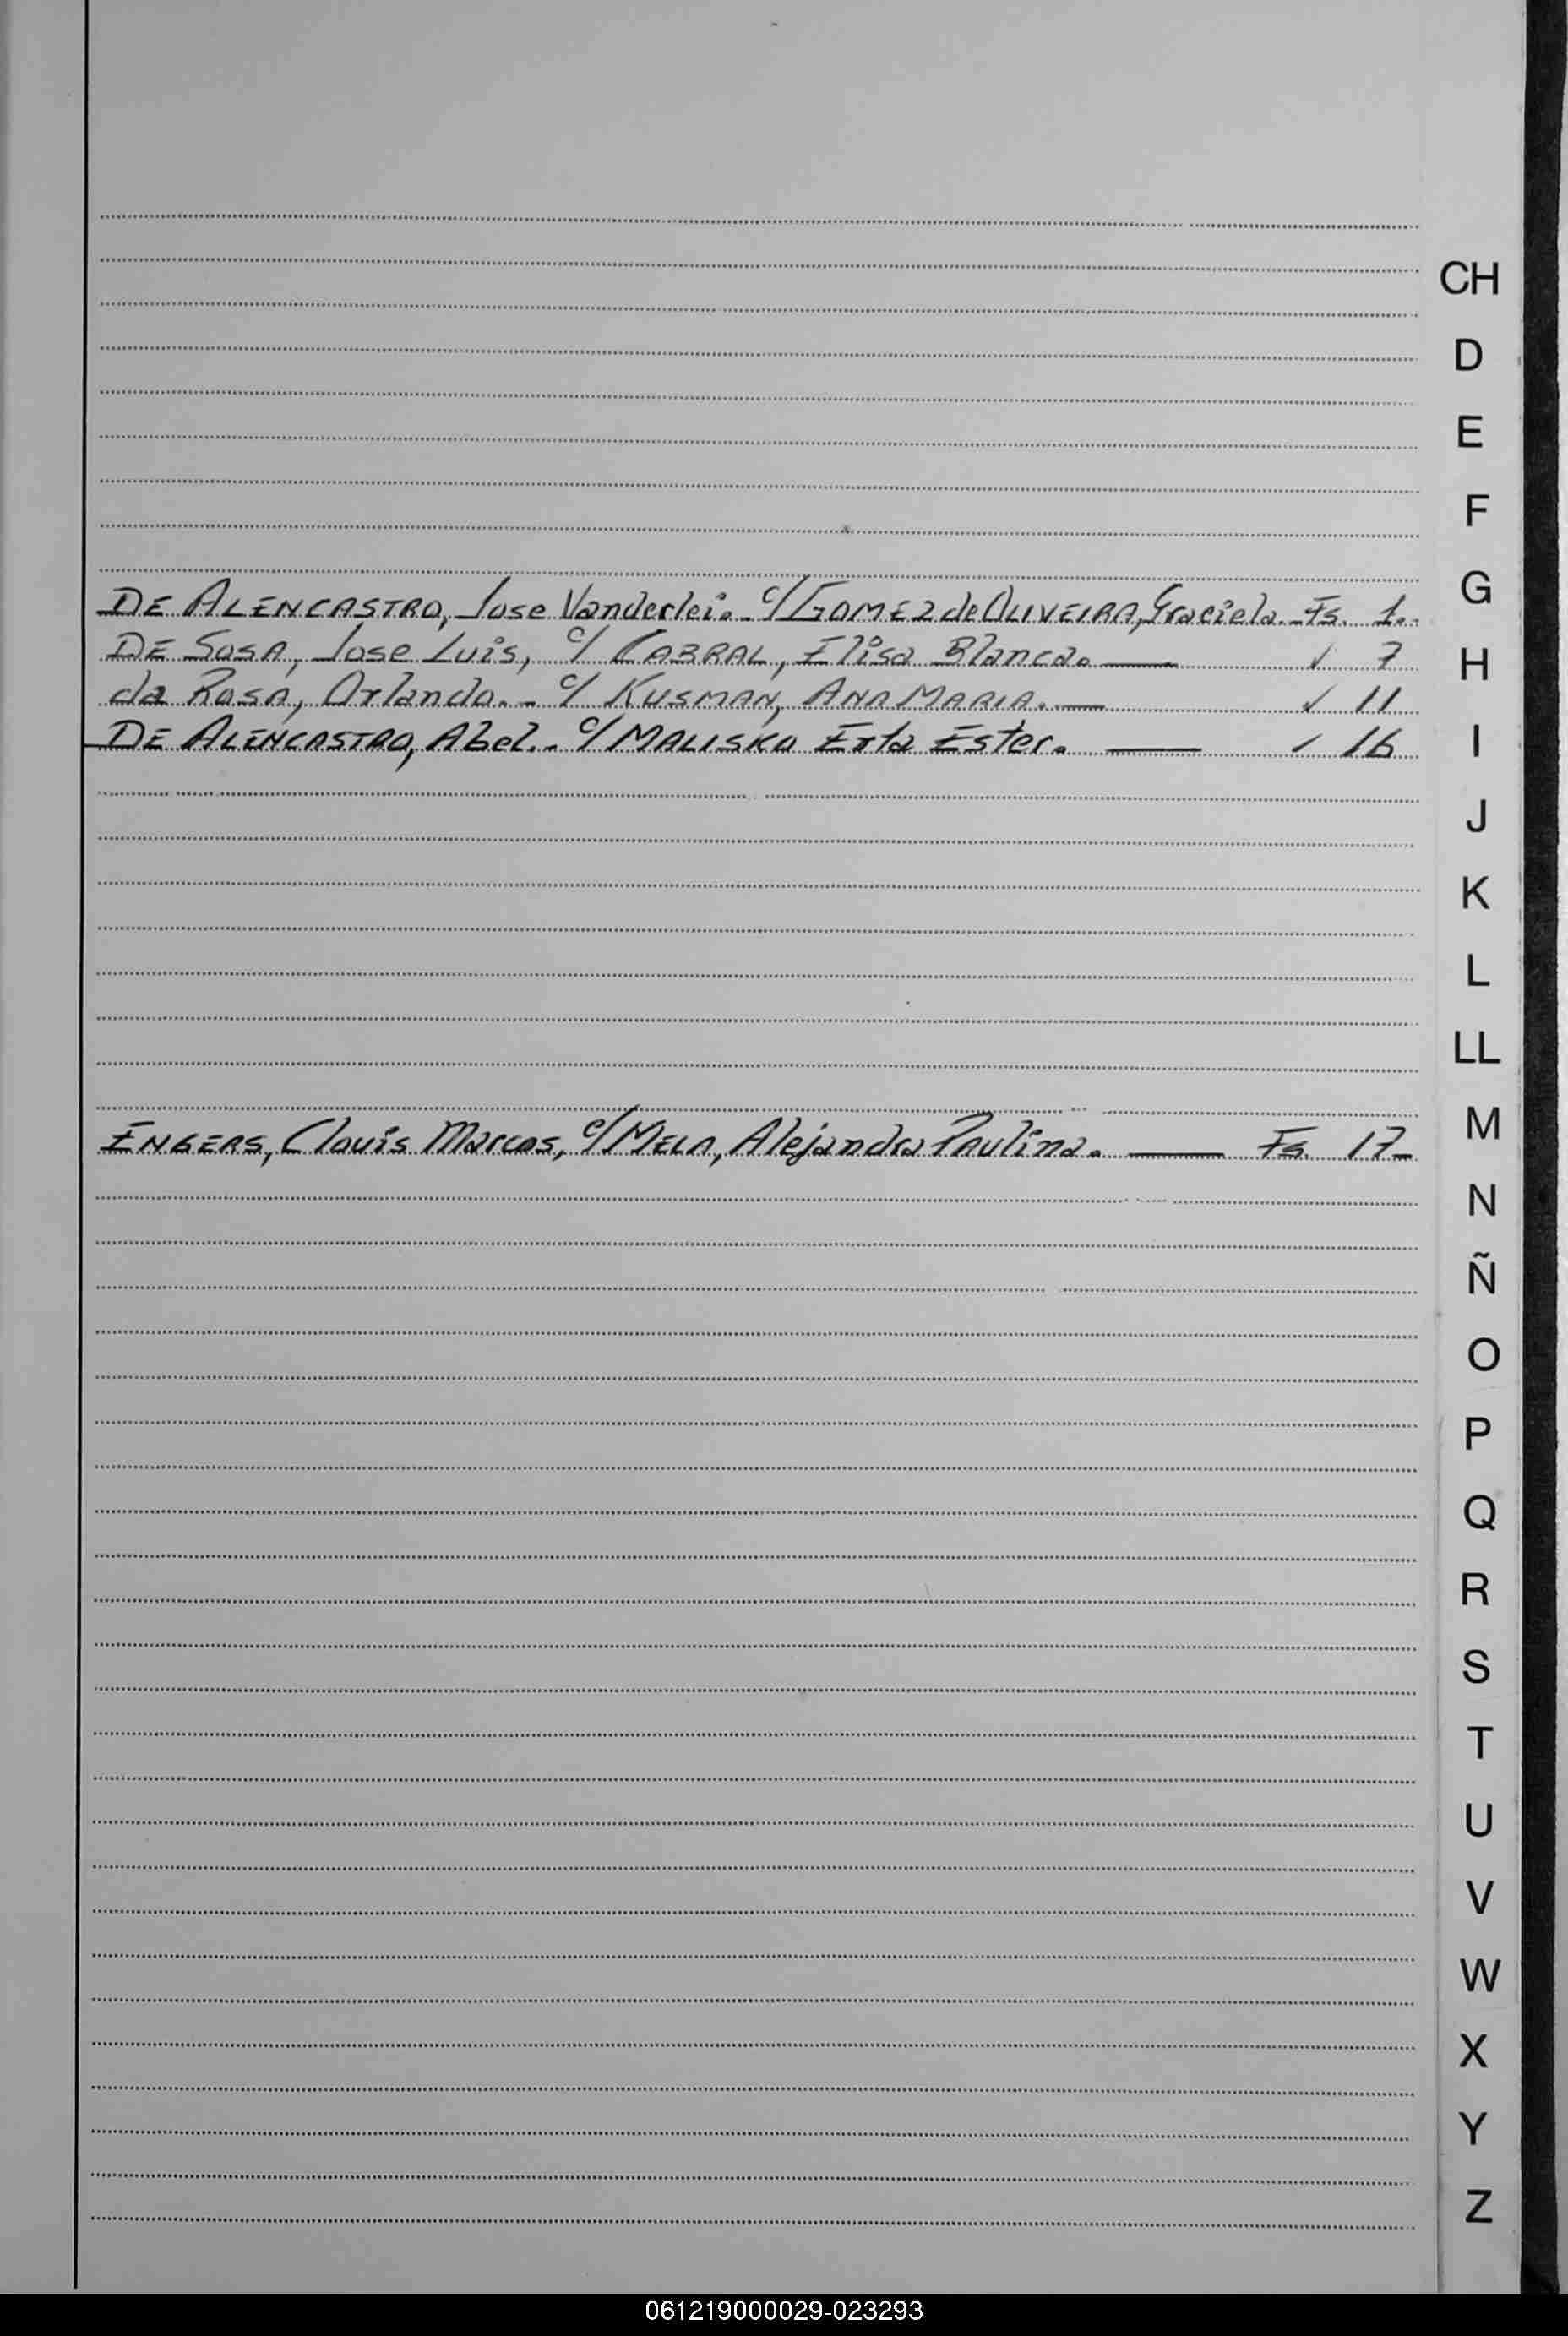 CH
D
E
F
G
DE ALENCASTRO, Jose Vanderlei.- c/ GOMEZ de OLIVEIRA, Graciela.- Fs. 1.-
DE SOSA, Jose Luis, c/ CABRAL, Elisa Blanca. ——— ✓ 7
H
da ROSA, Orlando.- c/ KUSMAN, ANA MARIA. —— ✓ 11
DE ALENCASTRO, Abel.- c/ MALISKO Ester. ——— ✓ 16
I
J
K
L
LL
M
ENGERS, Clovis Marcos, c/ MELA, Alejandra Paulina. ——— Fs. 17-
N
Ñ
O
P
Q
R
S
T
U
V
W
X
Y
Z
061219000029-023293